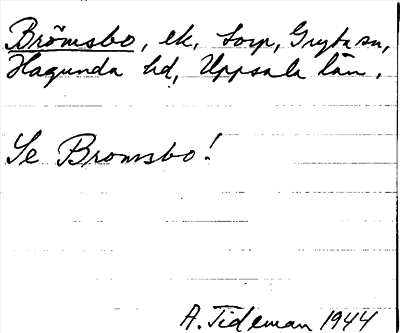 Brömsbo, ek, torp, Gryta sn,
Hagunda hd, Uppsala län.
Se Bromsbo!
A. Tideman 1944